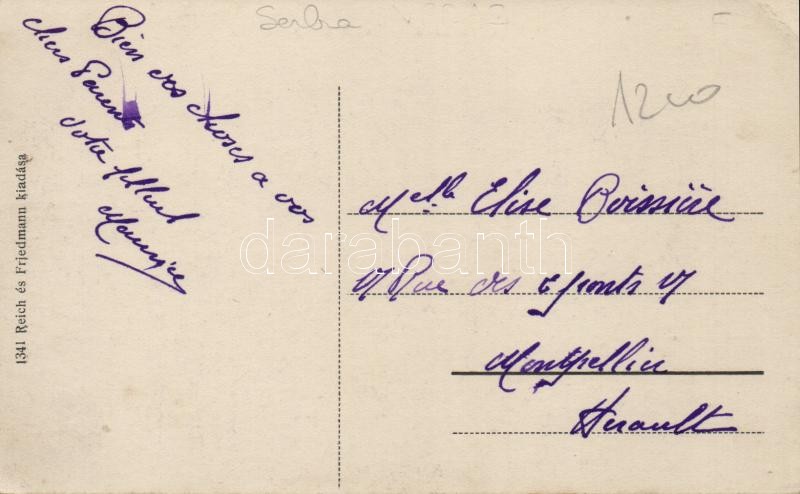 Serbia
1200
Bien des choses a vos
chers Parents
Votre filleul
Maurice
Melle Elise Boissière
17 Rue des ponts 17
Montpellier
Herault
1341 Reich és Frjedmann kiadása
darabanth